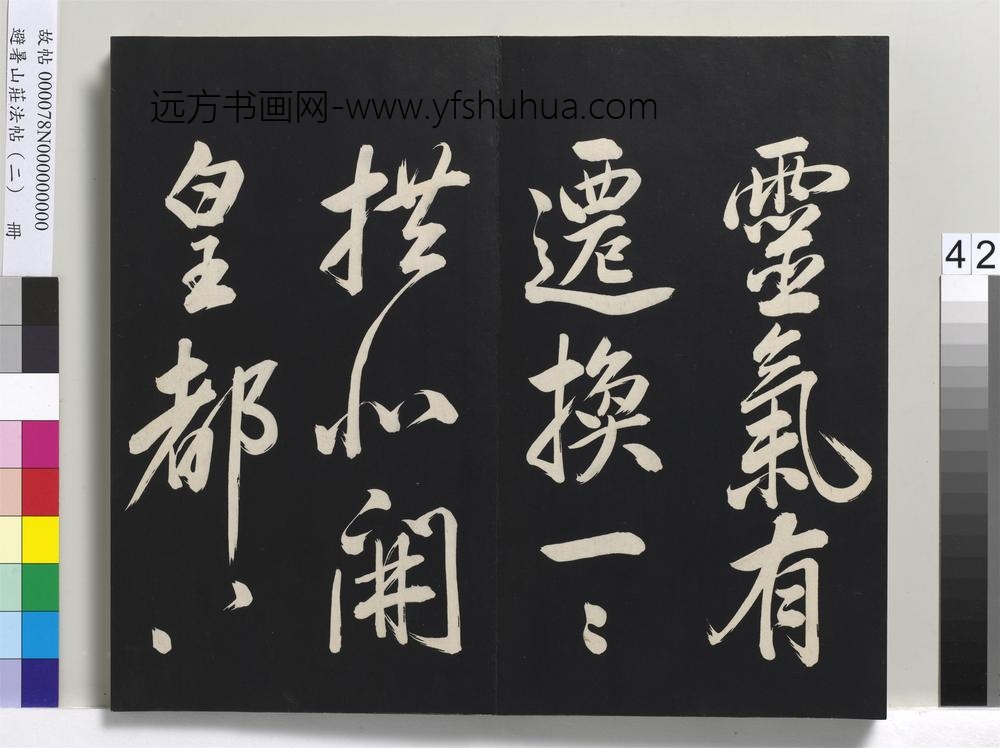 远方书画网-www.yfshuhua.com
靈氣有
遷換一〻
拱北開
皇都〻
故帖 000078N000000000
避暑山莊法帖（二） 冊
42